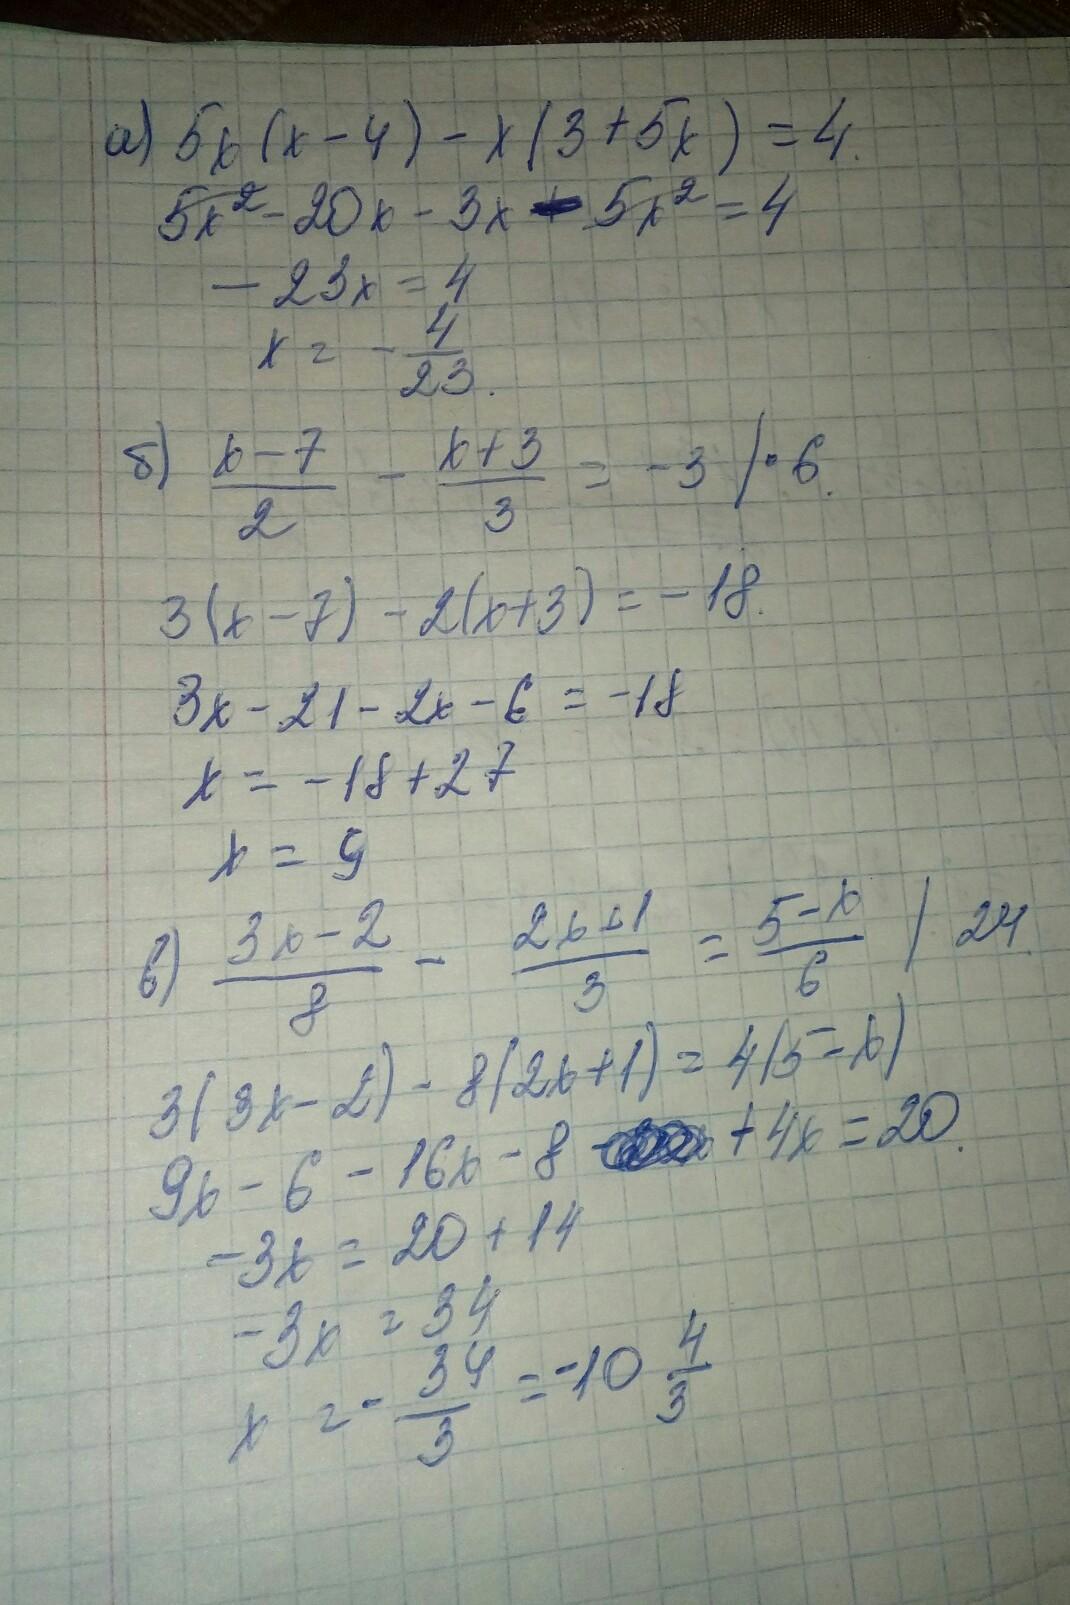 а) 5x(x-4)-x(3+5x)=4.
5x²-20x-3x-5x²=4
-23x=4
x=-4/23.
б) (x-7)/2 - (x+3)/3 = -3 | · 6.
3(x-7)-2(x+3)=-18.
3x-21-2x-6=-18
x=-18+27
x=9
в) (3x-2)/8 - (2x+1)/3 = (5-x)/6 | 24.
3(3x-2)-8(2x+1)=4(5-x)
9x-6-16x-8+4x=20.
-3x=20+14
-3x=34
x=-34/3=-10 4/3